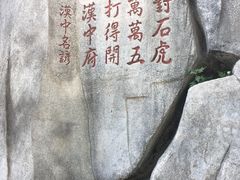 對石虎
萬萬五
打得開
漢中府
漢中名諺